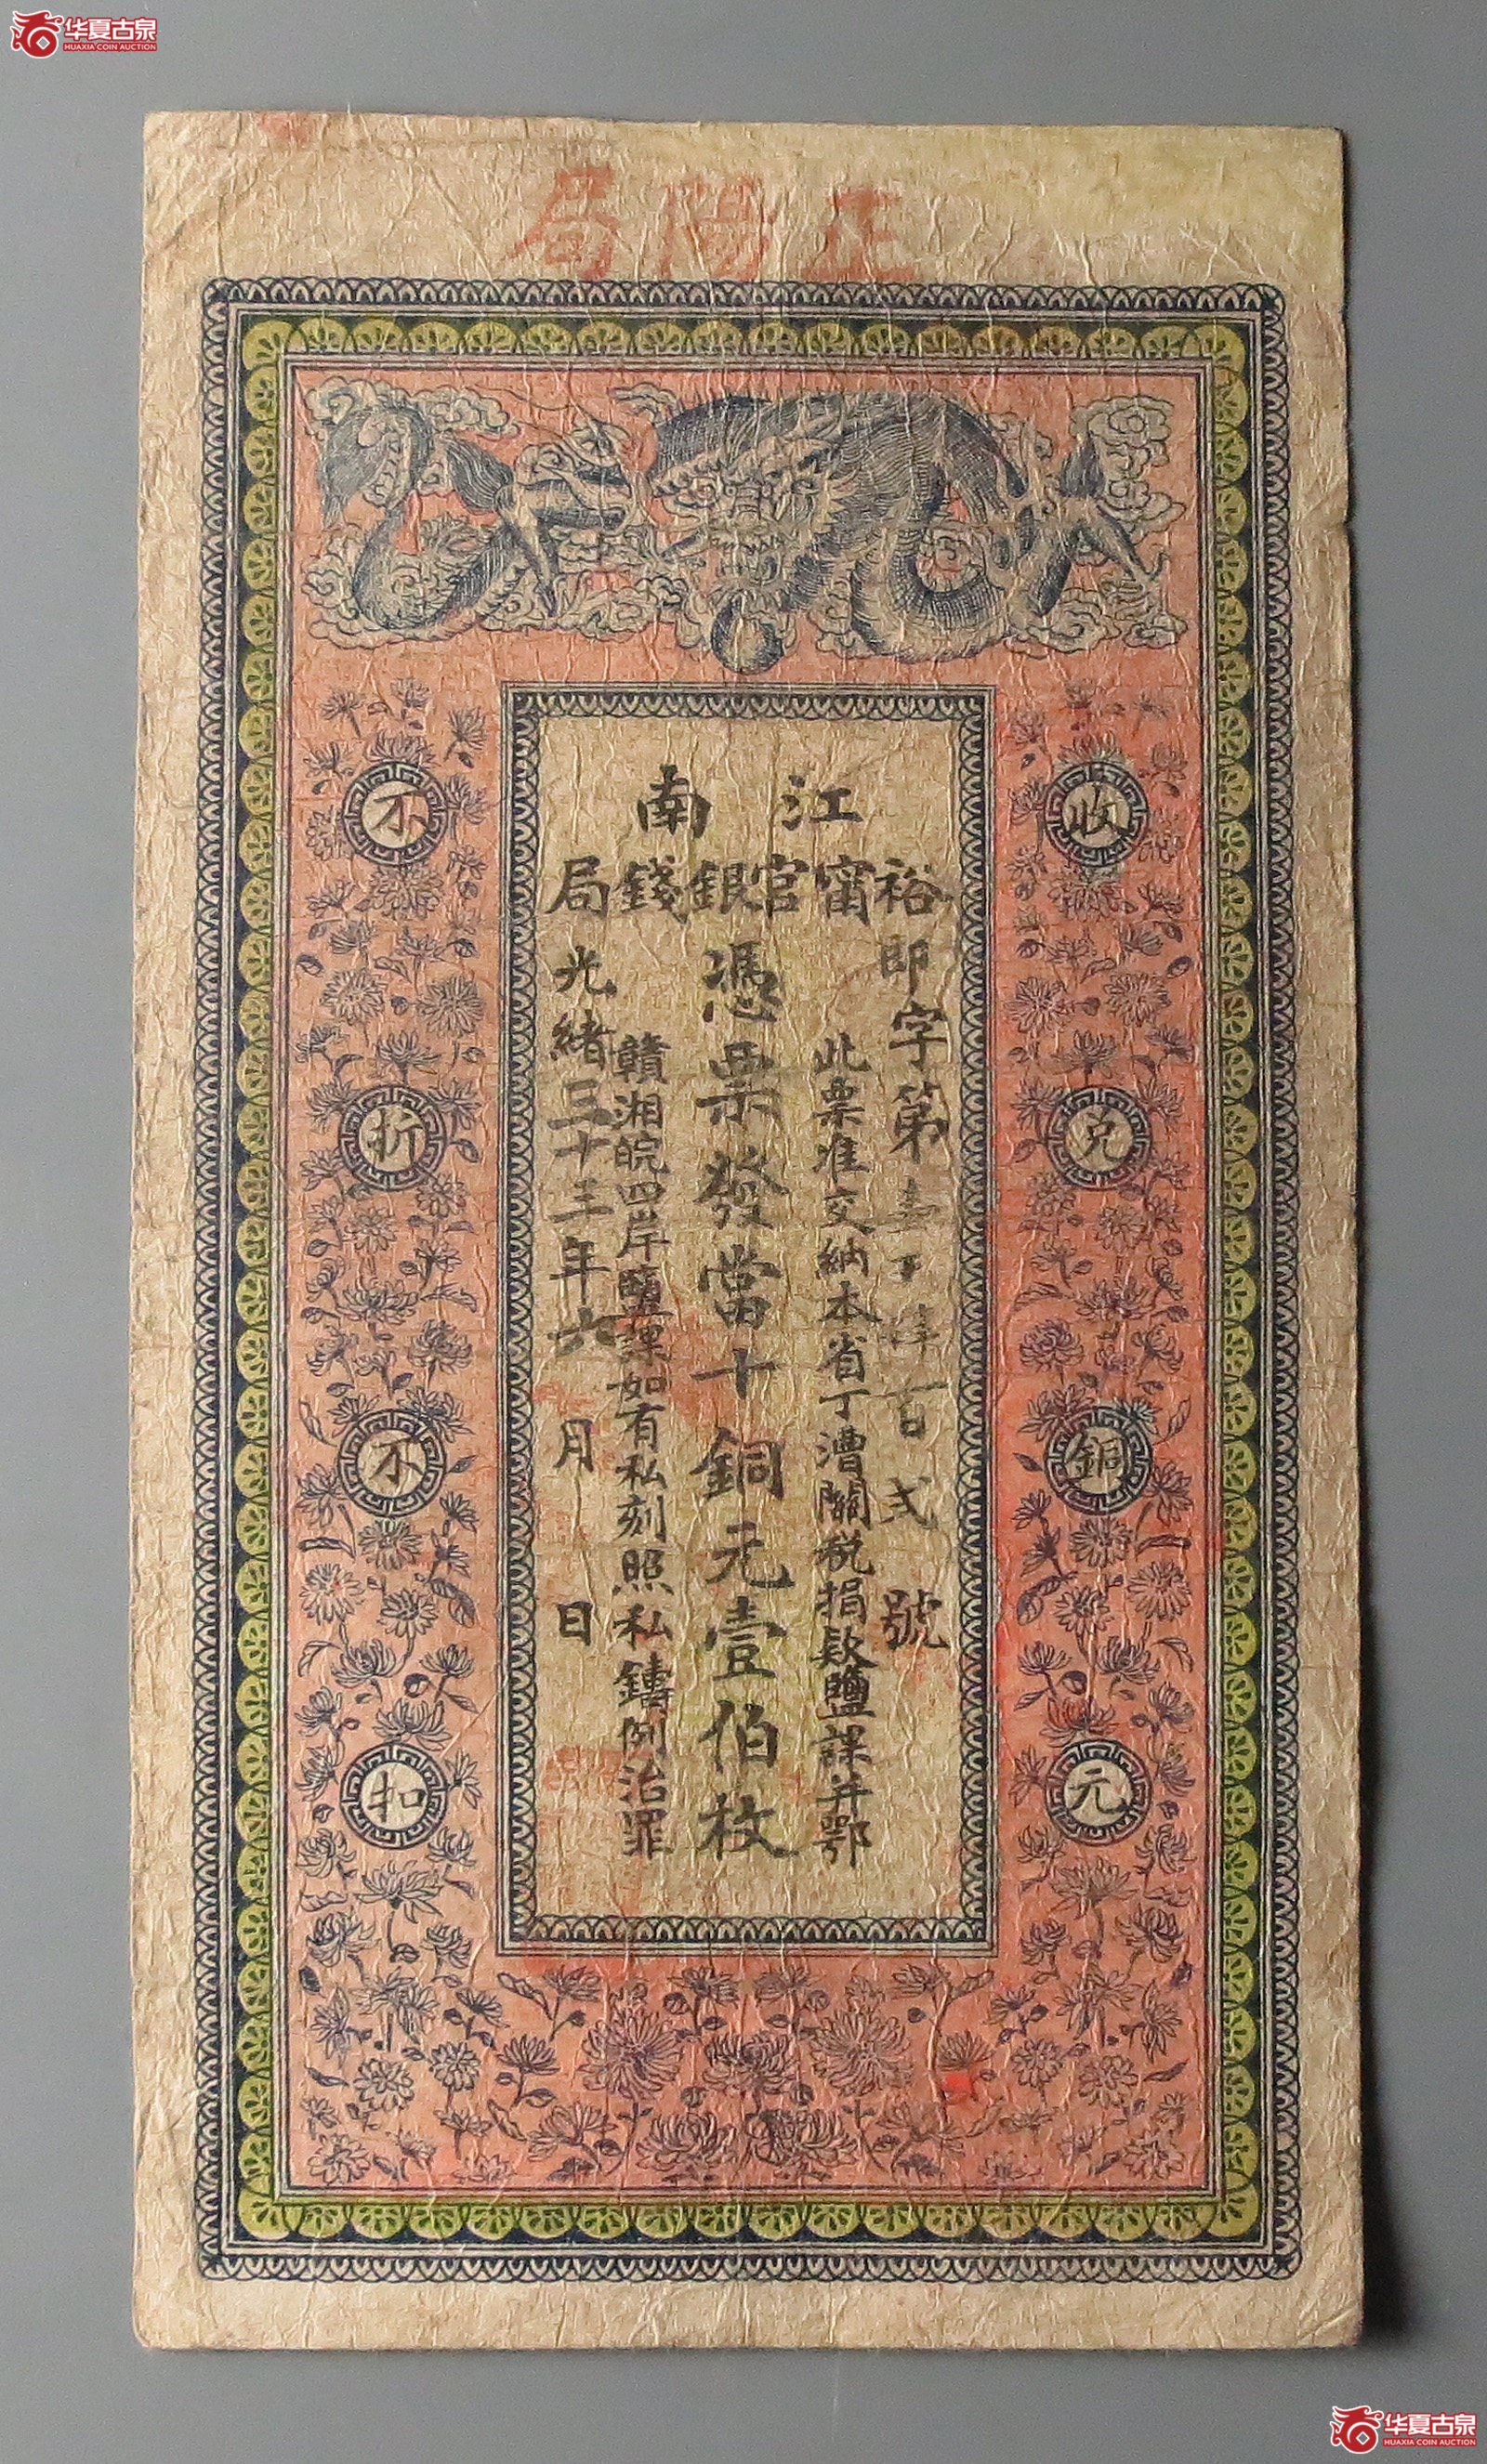 华夏古泉
HUAXIA COIN AUCTION
正陽局
江南
裕甯官銀錢局
即字第壹千肆百弍號
此票准交納本省丁漕關稅捐欵鹽課并鄂
憑票發當十銅元壹伯枚
贛湘皖四岸鹽課如有私刻照私鑄例治罪
光緒三十三年六月日
收兌銅元
不折不扣
华夏古泉
HUAXIA COIN AUCTION